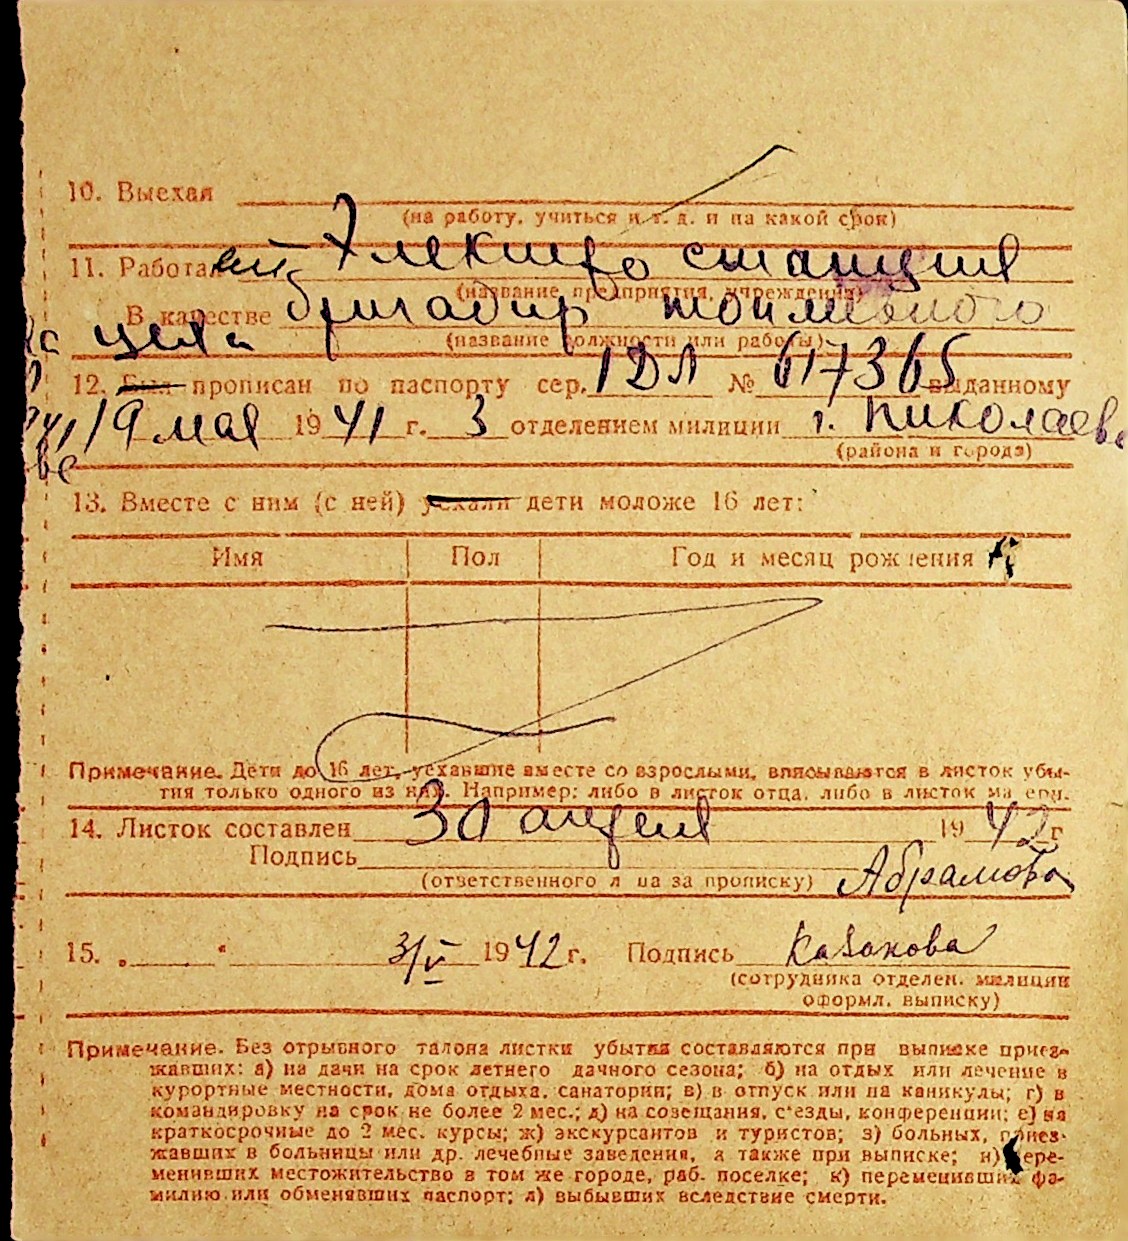 10. Выехал
(на работу, учиться и т. д. и на какой срок)
11. Работает Электро станция
(название предприятия, учреждения)
В качестве бригадир топливного
цеха
(название должности или работы)
12. Был прописан по паспорту сер. IДЛ № 617365 выданному
19 мая 1941 г. 3 отделением милиции г. Николаев
(района и города)
13. Вместе с ним (с ней) уехали дети моложе 16 лет:
Имя Пол Год и месяц рождения
Примечание. Дети до 16 лет, уехавшие вместе со взрослыми, вписываются в листок убы-
тия только одного из них. Например: либо в листок отца, либо в листок матери.
14. Листок составлен 30 апреля 1942 г
Подпись Абрамова
(ответственного лица за прописку)
15. „ “ 3/V 1942 г. Подпись Казакова
(сотрудника отделен. милиции
оформл. выписку)
Примечание. Без отрывного талона листки убытия составляются при выписке приез-
жавших: а) на дачи на срок летнего дачного сезона; б) на отдых или лечение в
курортные местности, дома отдыха, санатории; в) в отпуск или на каникулы; г) в
командировку на срок не более 2 мес.; д) на совещания, с'езды, конференции; е) на
краткосрочные до 2 мес. курсы; ж) экскурсантов и туристов; з) больных, приез-
жавших в больницы или др. лечебные заведения, а также при выписке; и) пере-
менивших местожительство в том же городе, раб. поселке; к) переменивших фа-
милию или обменявших паспорт; л) выбывших вследствие смерти.